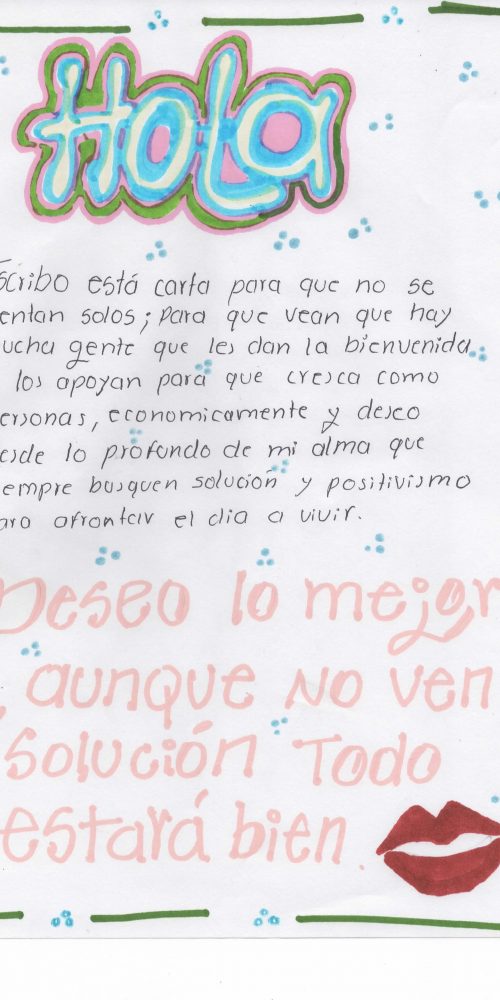 Hola
scribo está carta para que no se
entan solos; para que vean que hay
ucha gente que les dan la bienvenida
los apoyan para que cresca como
ersonas, economicamente y deseo
esde lo profondo de mi alma que
empre busquen solución y positivismo
ara afrontar el dia a vivir.
Deseo lo mejor
, aunque No ven
solución Todo
estará bien.